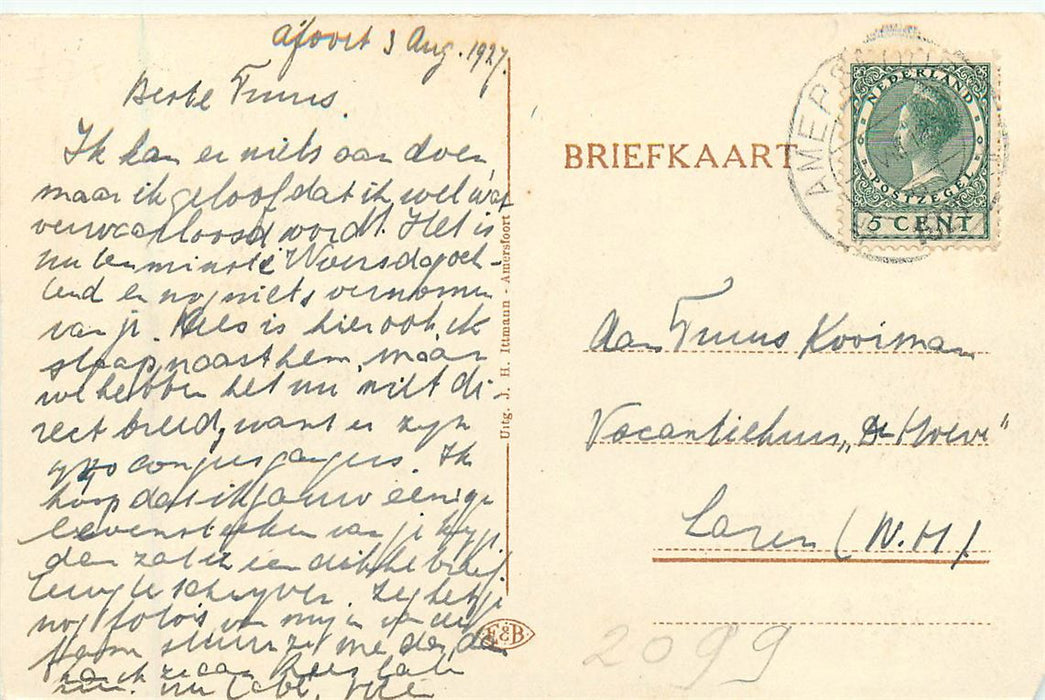 Afoort 3 Aug. 1927.
Beste Truus.
Ik kan er niets aan doen
maar ik geloof dat ik wel wat
verwaarloosd wordt. Het is
nu ten minste Woensdagoch-
tend en nog niets vernomen
van je. Kees is hier ook ik
slaap naast hem, maar
we hebben het nu niet di-
rect breed, want er zijn
congresgangers. Ik
hoop dat ik gauw eenige
levensteeken van je krijg
dan zal ik een dikke brief
terug te schrijven. Zeg heb je
nog foto's van mij en van de
stuur ze me dan
Kees
Uitg. J. H. Ittmann - Amersfoort
E&B
BRIEFKAART
AMERSFOORT
NEDERLAND
POSTZEGEL
5 CENT
Aan Truus Kooiman
Vacantiehuis "De Hoeve"
Laren (N.H.)
2099